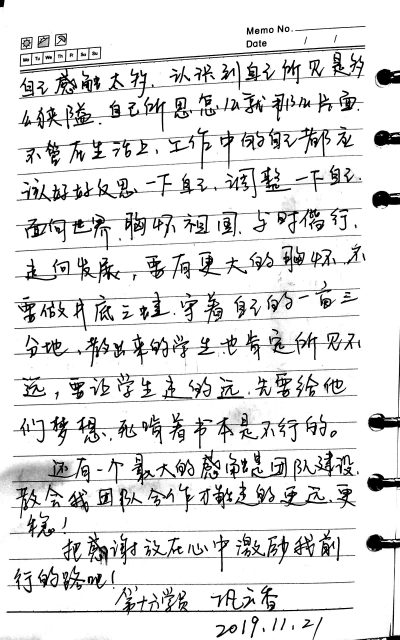 Memo No.
Date / /
Mo Tu We Th Fr Sa Su
自己感触太多，认识到自己所见是多
么狭隘，自己所思怎么就那么片面，
不管在生活上，工作中的自己都应
该好好反思一下自己，调整一下自己，
面向世界，胸怀祖国，与时偕行，
走向发展，要有更大的胸怀，不
要做井底之蛙，守着自己的一亩三
分地，教出来的学生也肯定所见不
远，要让学生走的远，先要给他
们梦想，死啃着书本是不行的。
还有一个最大的感触是团队建设，
教会我团队合作才能走的更远，更
稳！
把感谢放在心中激励我前
行的路吧！
第十六学员 巩云香
2019.11.21